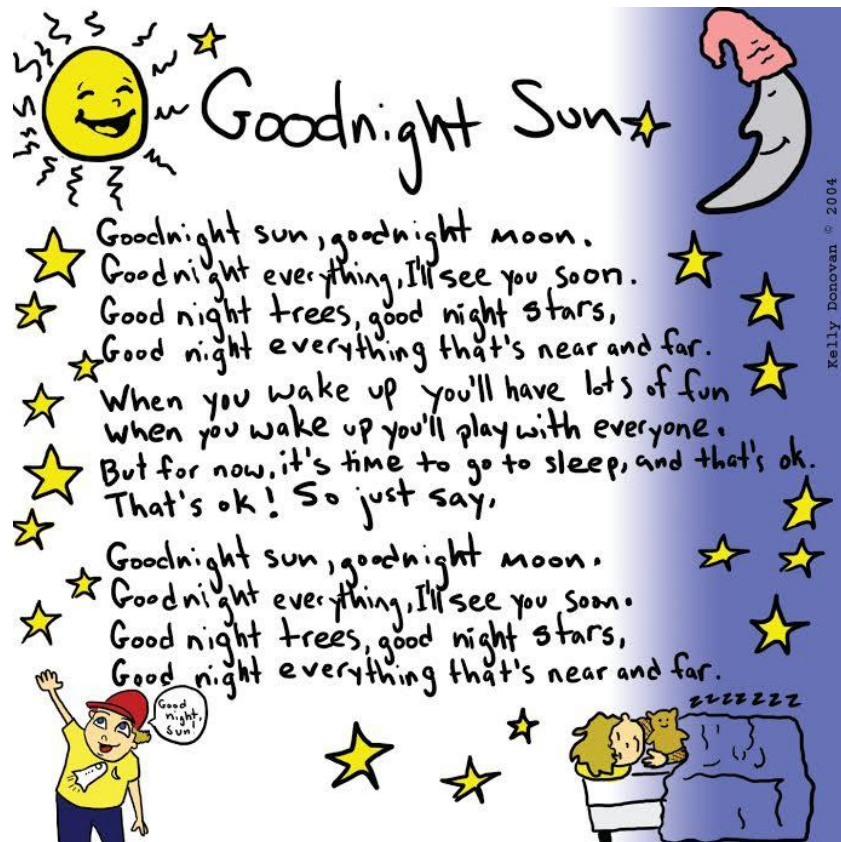 Goodnight Sun
Goodnight sun, goodnight moon.
Goodnight everything, I'll see you soon.
Good night trees, good night stars,
Good night everything that's near and far.
When you wake up you'll have lots of fun
when you wake up you'll play with everyone.
But for now, it's time to go to sleep, and that's ok.
That's ok! So just say,
Goodnight sun, goodnight moon.
Goodnight everything, I'll see you soon.
Good night trees, good night stars,
Good night everything that's near and far.
Good
night,
sun!
zzzzzzz
Kelly Donovan © 2004